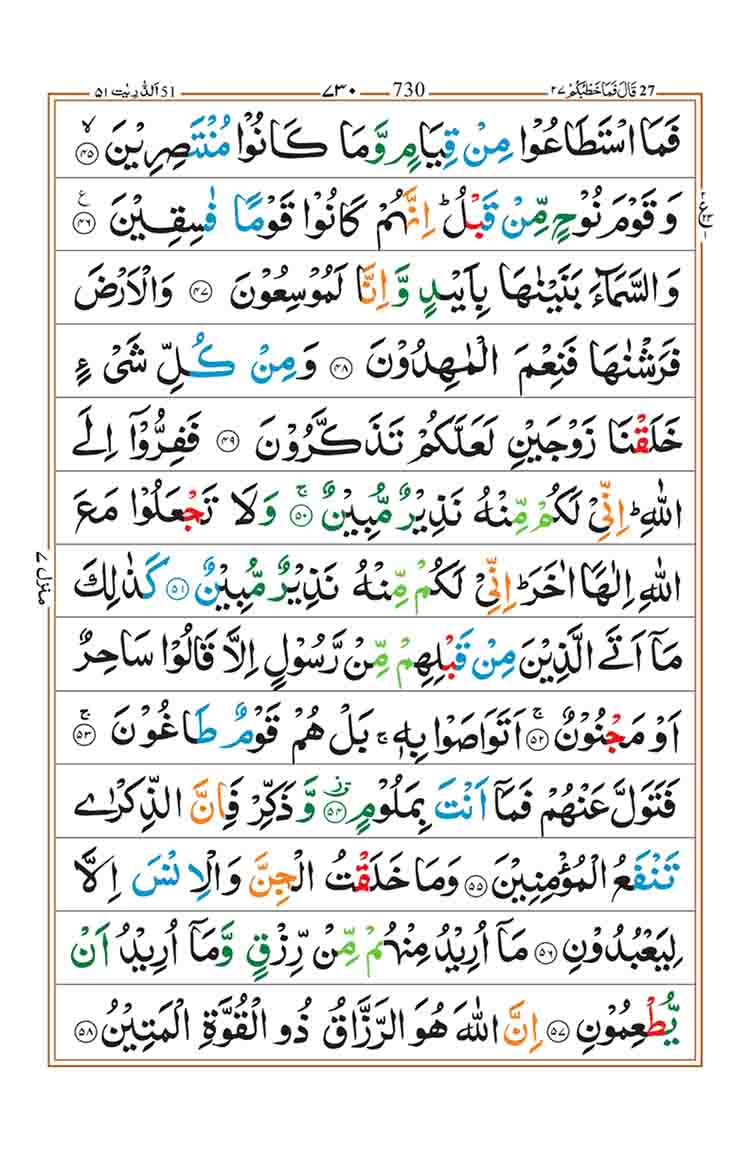 27 قَالَ فَمَا خَطْبُكُمْ ٢٧ 730 ٧٣٠ 51 اَلذّٰرِيٰت ٥١
فَمَا اسْتَطَاعُوْا مِنْ قِيَامٍ وَّمَا كَانُوْا مُنْتَصِرِيْنَ ۙ‏﴿۴۵﴾
وَ قَوْمَ نُوْحٍ مِّنْ قَبْلُ ؕ اِنَّهُمْ كَانُوْا قَوْمًا فٰسِقِيْنَ ﴿۴۶﴾ ع
وَ السَّمَآءَ بَنَيْنٰهَا بِاَيْىدٍ وَّ اِنَّا لَمُوْسِعُوْنَ ﴿۴۷﴾ وَ الْاَرْضَ
فَرَشْنٰهَا فَنِعْمَ الْمٰهِدُوْنَ ﴿۴۸﴾ وَ مِنْ كُلِّ شَىْءٍ
خَلَقْنَا زَوْجَيْنِ لَعَلَّكُمْ تَذَكَّرُوْنَ ﴿۴۹﴾ فَفِرُّوْۤا اِلَى
اللّٰهِ ؕ اِنِّىْ لَكُمْ مِّنْهُ نَذِيْرٌ مُّبِيْنٌ ۚ﴿۵۰﴾ وَلَا تَجْعَلُوْا مَعَ
اللّٰهِ اِلٰهًا اٰخَرَ ؕ اِنِّىْ لَكُمْ مِّنْهُ نَذِيْرٌ مُّبِيْنٌ ﴿۵۱﴾ كَذٰلِكَ
مَاۤ اَتَى الَّذِيْنَ مِنْ قَبْلِهِمْ مِّنْ رَّسُوْلٍ اِلَّا قَالُوْا سَاحِرٌ
اَوْ مَجْنُوْنٌ ۚ﴿۵۲﴾ اَتَوَاصَوْا بِهٖ ۚ بَلْ هُمْ قَوْمٌ طَاغُوْنَ ۚ﴿۵۳﴾
فَتَوَلَّ عَنْهُمْ فَمَاۤ اَنْتَ بِمَلُوْمٍ ﴿۵۴﴾ وَّ ذَكِّرْ فَاِنَّ الذِّكْرٰى
تَنْفَعُ الْمُؤْمِنِيْنَ ﴿۵۵﴾ وَمَا خَلَقْتُ الْجِنَّ وَالْاِنْسَ اِلَّا
لِيَعْبُدُوْنِ ﴿۵۶﴾ مَاۤ اُرِيْدُ مِنْهُمْ مِّنْ رِّزْقٍ وَّمَاۤ اُرِيْدُ اَنْ
يُّطْعِمُوْنِ ﴿۵۷﴾ اِنَّ اللّٰهَ هُوَ الرَّزَّاقُ ذُو الْقُوَّةِ الْمَتِيْنُ ﴿۵۸﴾
منزل ٧